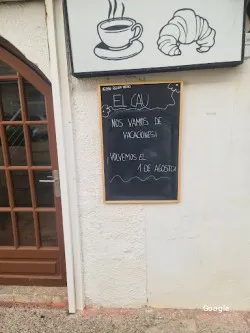 EL CAU
NOS VAMOS DE
VACACIONES!
VOLVEMOS EL
1 DE AGOSTO!
Google